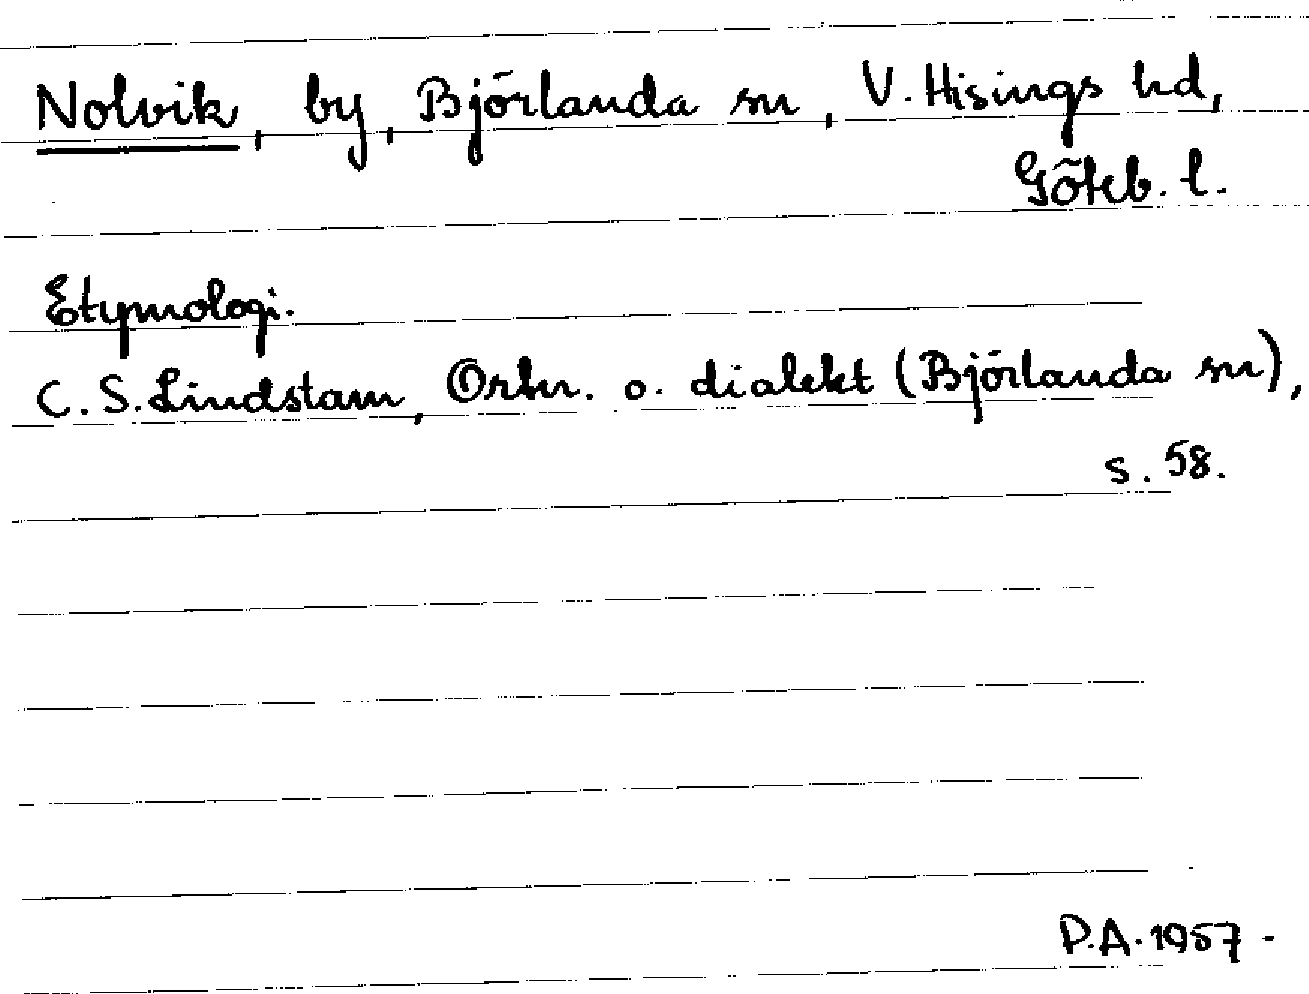 Nolvik, by, Björlanda sn, V. Hisings hd,
Göteb. l.
Etymologi.
C. S. Lindstam, Ortn. o. dialekt (Björlanda sn),
s. 58.
P.A. 1957.